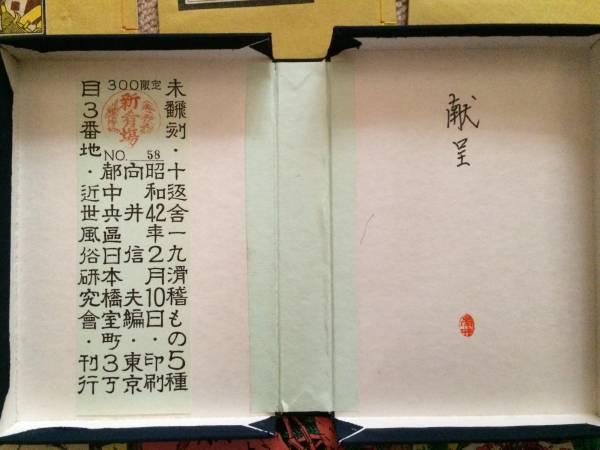 献呈
未飜刻・十返舎一九滑稽もの5種
300限定
新肴場
NO. 58
昭和42年2月10日・印刷
向井信夫編・東京
都中央區日本橋室町3丁
目3番地・近世風俗研究會・刊行